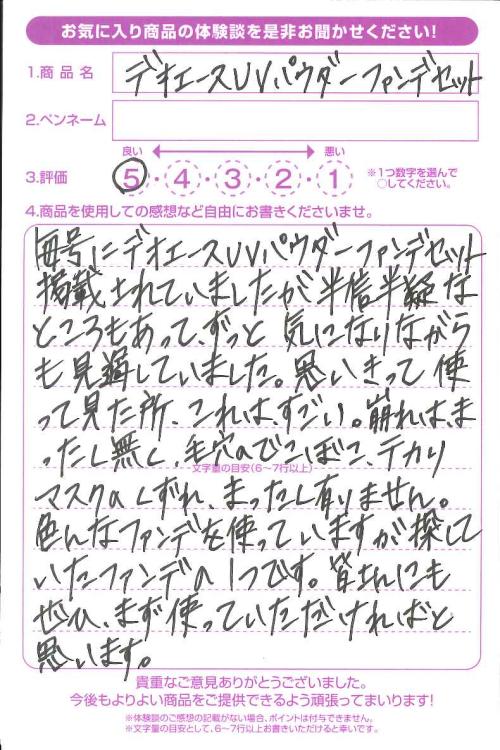 お気に入り商品の体験談を是非お聞かせください!
1.商品名 デオエースUVパウダーファンデセット
2.ペンネーム
良い 悪い
3.評価 5・4・3・2・1 ※1つ数字を選んで
○してください。
4.商品を使用しての感想など自由にお書きくださいませ。
毎号にデオエースUVパウダーファンデセット
掲載されていましたが半信半疑な
ところもあって、ずっと気になりながら
も見過していました。思いきって使
って見た所、これは、すごい。崩れは、ま
ったく無く、毛穴のでこぼこ、テカリ
文字量の目安(6〜7行以上)
マスクのくずれ、まったく有りません。
色んなファンデを使っていますが探して
いたファンデの1つです。皆さんにも
ぜひ、まず使っていただければと
思います。
貴重なご意見ありがとうございました。
今後もよりよい商品をご提供できるよう頑張ってまいります!
※体験談のご感想の記載がない場合、ポイントは付与できません。
※文字量の目安として、6〜7行以上お書きいただけると幸いです。